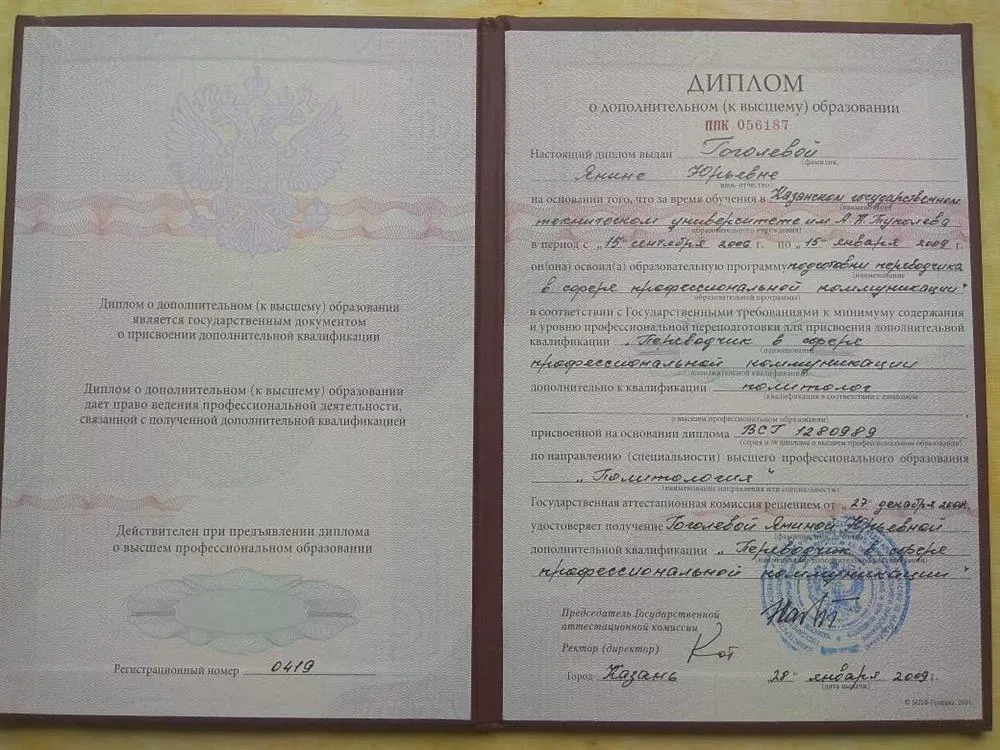 Диплом о дополнительном (к высшему) образовании
является государственным документом
о присвоении дополнительной квалификации
Диплом о дополнительном (к высшему) образовании
дает право ведения профессиональной деятельности,
связанной с полученной дополнительной квалификацией
Действителен при предъявлении диплома
о высшем профессиональном образовании
Регистрационный номер 0419
ДИПЛОМ
о дополнительном (к высшему) образовании
ППК 056187
Настоящий диплом выдан Гоголевой
(фамилия,
Янине Юрьевне
имя, отчество)
на основании того, что за время обучения в Казанском государственном
(наименование
техническом университете им А.Н.Туполева
образовательного учреждения)
в период с „15“ сентября 2006 г. по „15“ января 2009 г.
он(она) освоил(а) образовательную программу подготовки переводчика
(наименование
в сфере профессиональной коммуникации“
образовательной программы)
в соответствии с Государственными требованиями к минимуму содержания
и уровню профессиональной переподготовки для присвоения дополнительной
квалификации „Переводчик в сфере
(наименование
профессиональной коммуникации
дополнительной квалификации)
дополнительно к квалификации политолог
(квалификация в соответствии с дипломом
о высшем профессиональном образовании)
присвоенной на основании диплома ВСГ 1280989
(серия и № диплома о высшем профессиональном образовании)
по направлению (специальности) высшего профессионального образования
„Политология“
(наименование направления или специальности)
Государственная аттестационная комиссия решением от „27“ декабря 2008г.
удостоверяет получение Гоголевой Яниной Юрьевной
(фамилия, имя, отчество)
дополнительной квалификации „Переводчик в сфере
(наименование дополнительной квалификации)
профессиональной коммуникации“
Председатель Государственной
аттестационной комиссии
Ректор (директор)
Город Казань 28“ января 2009г.
(дата выдачи)
© МПФ Гознака. 2004.